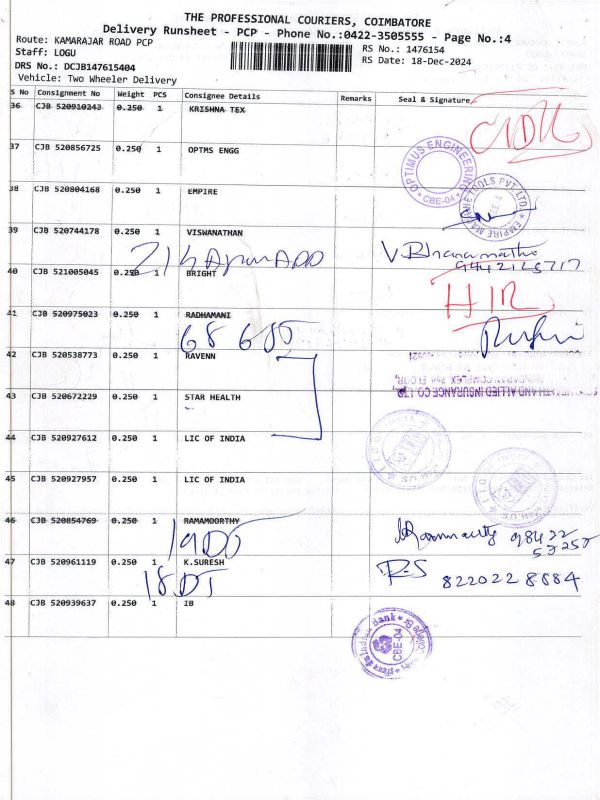 THE PROFESSIONAL COURIERS, COIMBATORE
Delivery Runsheet - PCP - Phone No.:0422-3505555 - Page No.:4
Route: KAMARAJAR ROAD PCP
RS No.: 1476154
Staff: LOGU
RS Date: 18-Dec-2024
DRS No.: DCJB147615404
Vehicle: Two Wheeler Delivery
S No Consignment No Weight PCS Consignee Details Remarks Seal & Signature
36 CJB 520910243 0.250 1 KRISHNA TEX
37 CJB 520856725 0.250 1 OPTMS ENGG
OPTIMUS ENGINEERING * CBE-04 *
38 CJB 520804168 0.250 1 EMPIRE
EMPIRE MACHINE TOOLS PVT LTD
39 CJB 520744178 0.250 1 VISWANATHAN
40 CJB 521005045 0.250 1 BRIGHT
41 CJB 520975023 0.250 1 RADHAMANI
42 CJB 520538773 0.250 1 RAVENN
43 CJB 520672229 0.250 1 STAR HEALTH
AND ALLIED INSURANCE CO LTD
44 CJB 520927612 0.250 1 LIC OF INDIA
45 CJB 520927957 0.250 1 LIC OF INDIA
46 CJB 520854769 0.250 1 RAMAMOORTHY
98422
47 CJB 520961119 0.250 1 K.SURESH
R-S 8220228884
48 CJB 520939637 0.250 1 IB
Indian Bank
CBE-04